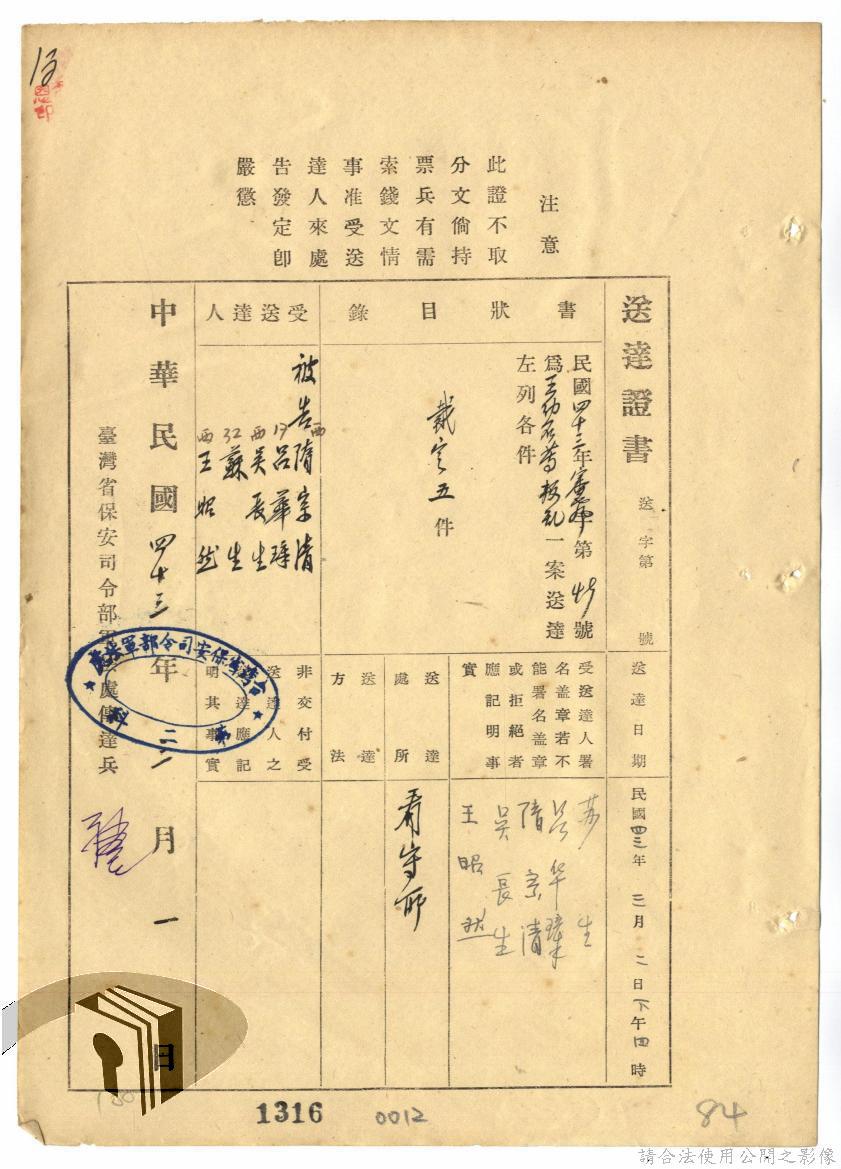 13
注意
此證不取
分文倘持
票兵有需
索錢文情
事准受送
達人來處
告發定即
嚴懲
送達證書
送 字第 號
書狀目錄
民國四十三年審 第 號
爲王幼石等叛亂一案送達
左列各件
裁定五件
受送達人
被告隋宗清
17 呂華璋
西 吳長生
32 蘇生
西 王昭然
中華民國四十三年三月一日
臺灣省保安司令部軍法處傳達兵
台灣省保安司令部軍法處
送達日期
民國四三年三月二日下午四時
受送達人署
名盖章若不
能署名盖章
或拒絕者
應記明事
實
苏生
吕华璋
隋宗清
吳長生
王昭然
送達處所
看守所
送達方法
非交付受
送達人之
送達應記
明其事實
1316
0012
84
請合法使用公開之影像